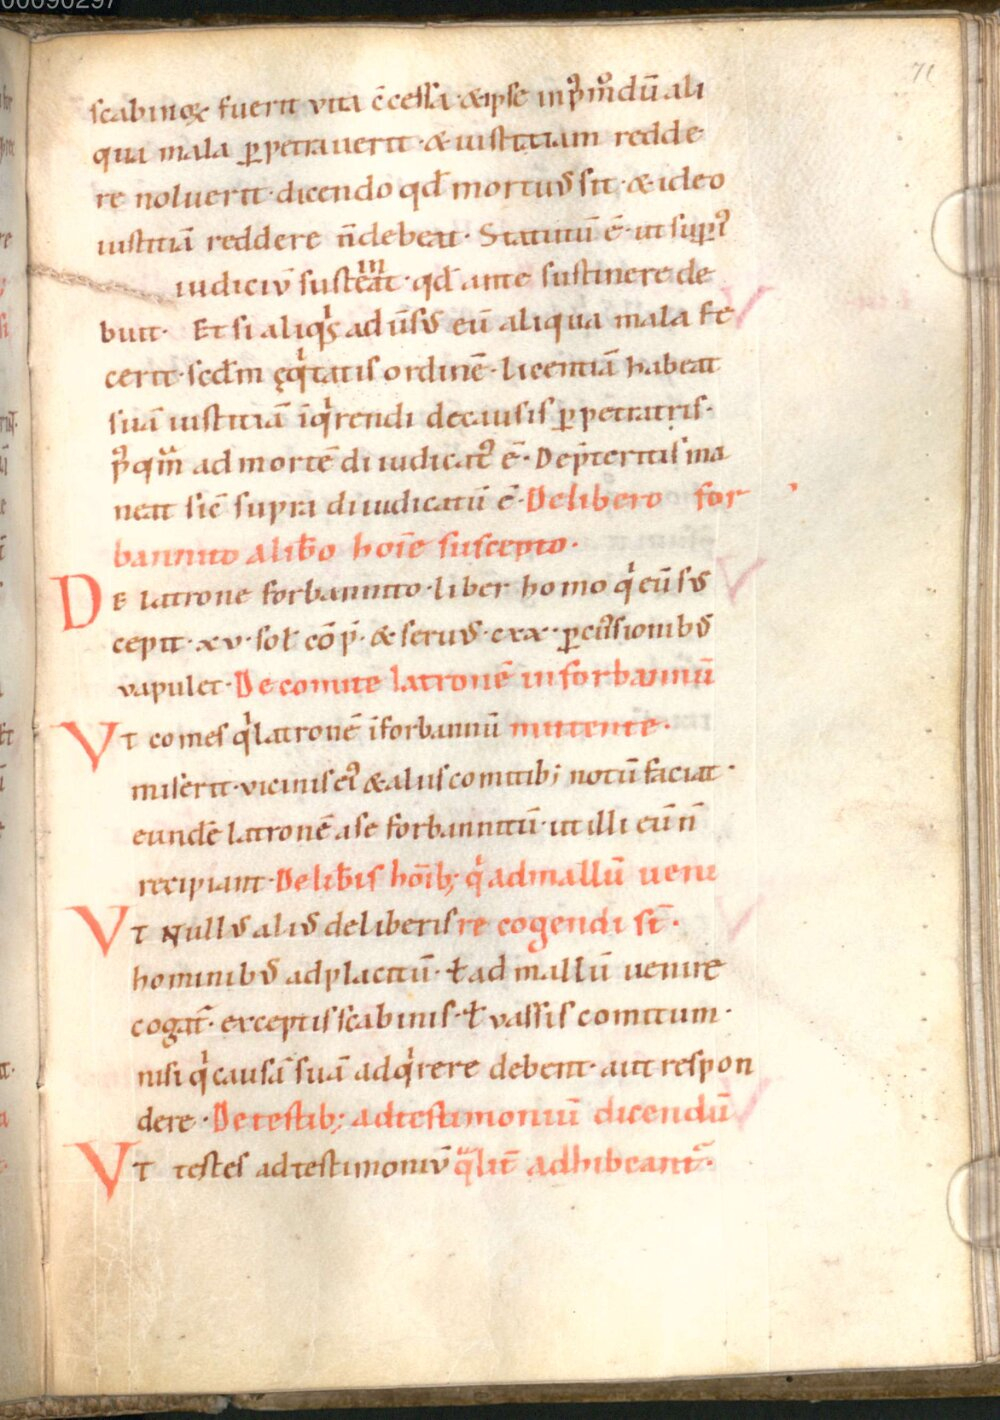 00090297
71
scabinoꝝ fuerit vita c̄cessa · & ipse inp̉m̊dū ali
qua mala ꝑpetrauerit · & iustitiam redde
re noluerit · dicendo qđ mortuꝰ sit · & ideo
iustitiā reddere n̄ debeat · Statutū ē · ut sup̱̉
iudiciū susteat · qđ ante sustinere de
in
buit · Et si aliqͥs aduͥsꝰ eū aliqua mala fe
cerit · scđm ęqͥtatis ordinē · licentiā habeat
suā iustitiā īqͥrendi de causis ꝑpetratis ·
p̉qͣm ad mortē diiudicat̉ ē · De p̄teritis ma
neat sic̄ supra diiudicatū ē · De libero for
bannito a lib̄o hoīe suscepto ·
DE latrone forbannito · liber homo qͥ eū sꝰ
cepit · xv · sol̄ cōp̄ · & seruꝰ · cxx · ꝑcussionibꝰ
vapulet · De comite latronē in forbannū
VT comes qͥ latronē ī forbannū mittente ·
miserit · vicinis eỉ & aliis comitib; notū faciat ·
eundē latronē a se forbannitū · ut illi eū n̄
recipiant · De lib̄is hōib; qͥ ad mallū ueni
VT Nullꝰ aliꝰ de liberis re cogendi st̄ ·
hominibꝰ ad placitū · ł ad mallū uenire
cogat̄ · exceptis scabinis · ł vassis comitum ·
nisi qͥ causā suā adqͥrere debent · aut respon
dere · De testib; ad testimoniū dicendū
VT testes ad testimoniū qͣlit̄ adhibeant̄ ·